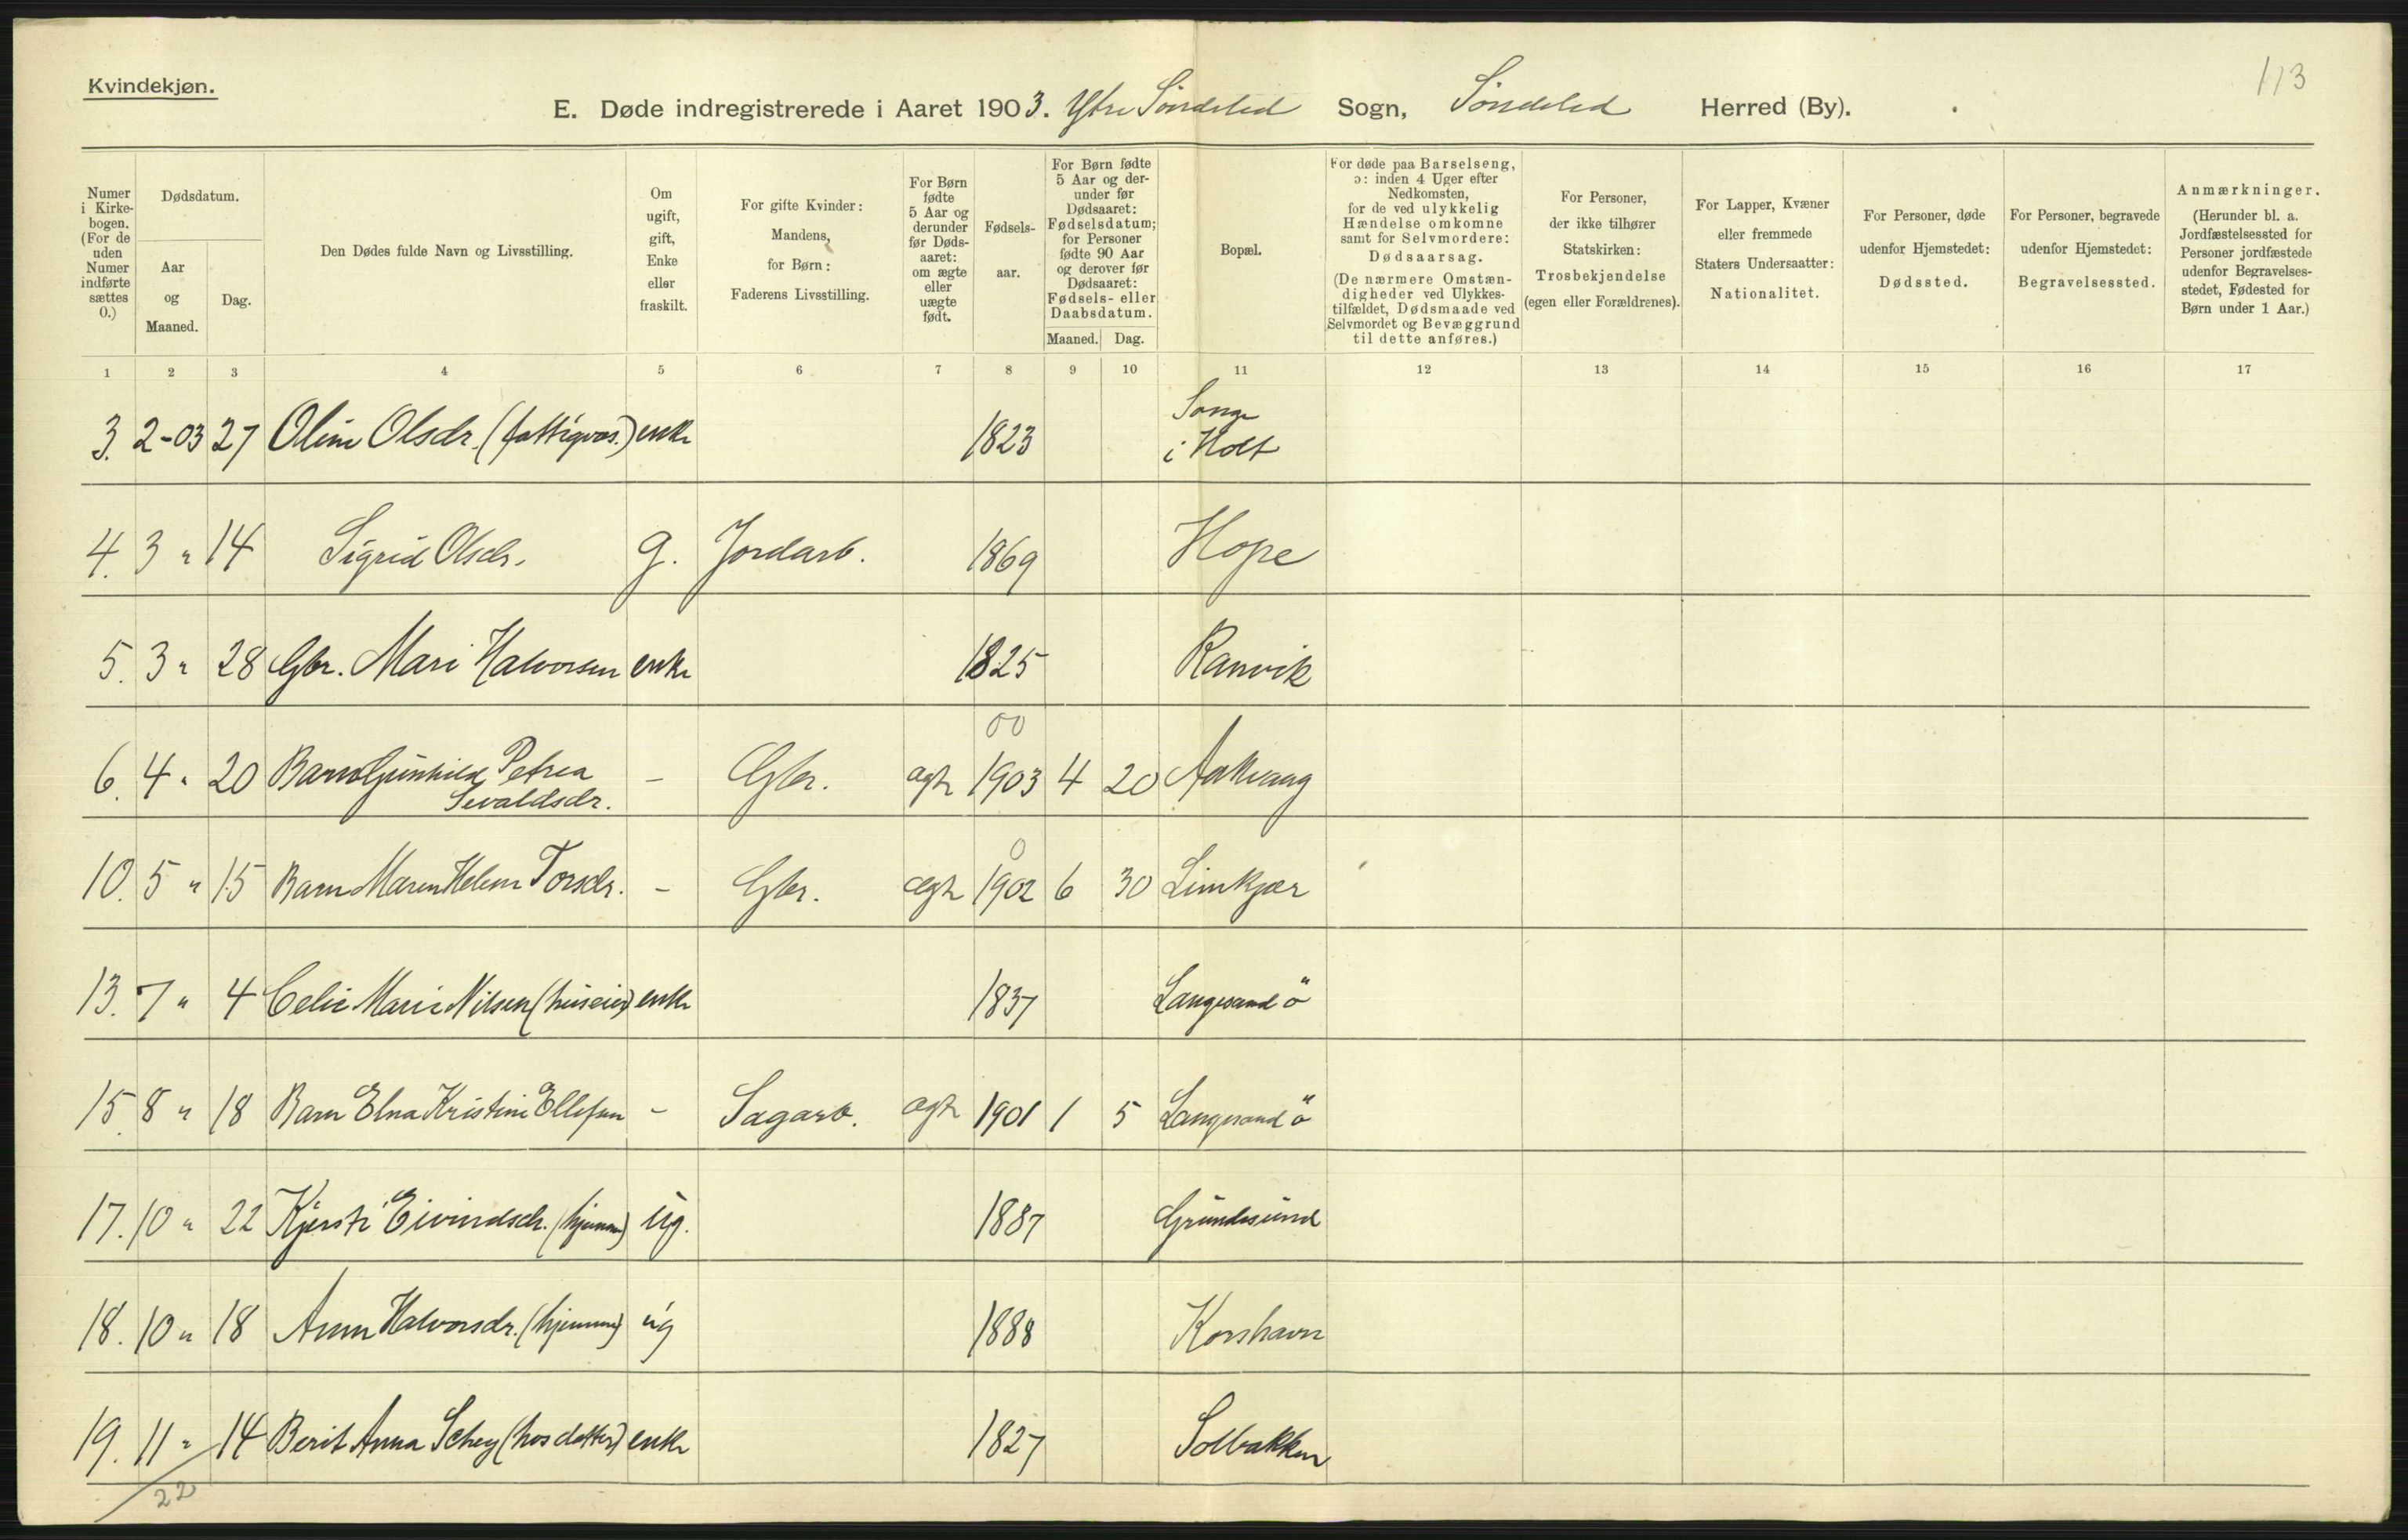 113
Kvindekjøn.
E. Døde indregistrerede i Aaret 1903. Ytre Söndeled Sogn, Söndeled Herred (By).
Numer i Kirkebogen. (For de uden Numer indførte sættes 0.)
Dødsdatum.
Aar og Maaned.
Dag.
Den Dødes fulde Navn og Livsstilling.
Om ugift, gift, Enke eller fraskilt.
For gifte Kvinder: Mandens, for Børn: Faderens Livsstilling.
For Børn fødte 5 Aar og derunder før Dødsaaret: om ægte eller uægte født.
Fødselsaar.
For Børn fødte 5 Aar og derunder før Dødsaaret: Fødselsdatum; for Personer fødte 90 Aar og derover før Dødsaaret: Fødsels- eller Daabsdatum.
Maaned. Dag.
Bopæl.
For døde paa Barselseng, ɔ: inden 4 Uger efter Nedkomsten, for de ved ulykkelig Hændelse omkomne samt for Selvmordere: Dødsaarsag. (De nærmere Omstændigheder ved Ulykkestilfældet, Dødsmaade ved Selvmordet og Bevæggrund til dette anføres.)
For Personer, der ikke tilhører Statskirken: Trosbekjendelse (egen eller Forældrenes).
For Lapper, Kvæner eller fremmede Staters Undersaatter: Nationalitet.
For Personer, døde udenfor Hjemstedet: Dødssted.
For Personer, begravede udenfor Hjemstedet: Begravelsessted.
Anmærkninger. (Herunder bl. a. Jordfæstelsessted for Personer jordfæstede udenfor Begravelsesstedet, Fødested for Børn under 1 Aar.)
1 2 3 4 5 6 7 8 9 10 11 12 13 14 15 16 17
3. 2-03 27 Oline Olsdr. (fattigvæs.) enke 1823 Songe i Holt
4. 3 " 14 Sigrid Olsdr. g. Jordarb. 1869 Hope
5. 3 " 28 Gbr. Mari Halvorsen enke 1825 Ranvik
00
6. 4 " 20 Barn Gunhild Petrea Sevaldsdr. - Gbr. ægte 1903 4 20 Aakvaag
0
10. 5 " 15 Barn Maren Helene Torsdr. - Gbr. ægte 1902 6 30 Limkjær
13. 7 " 4 Celie Marie Nilsen (huseier) enke 1837 Langesand ö
15. 8 " 18 Barn Elna Kristine Ellefsen - Sagarb. ægte 1901 1 5 Langesand ö
17. 10 " 22 Kjersti Eivindsdr. (hjemme) ug. 1887 Grundesund
18. 10 " 18 Anne Halvorsdr. (hjemme) ug 1888 Korshavn
19. 11 " 14 Berit Anna Schey (hos datter) enke 1827 Solbakken
22